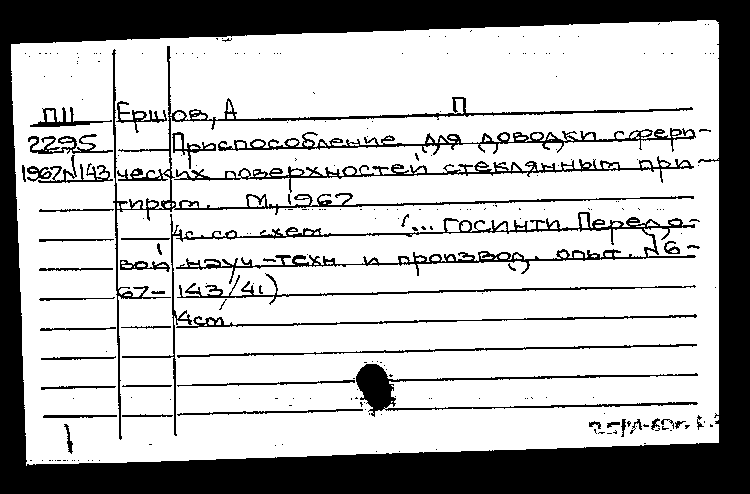 П11 Ершов, А П
2295 Приспособление для доводки сфери-
1967N143 ческих поверхностей стеклянным при-
тиром. М., 1967
4с. со схем. (... ГОСИНТИ. Передо-
вой науч.-техн. и производ. опыт. N6-
67-143/41)
4см.